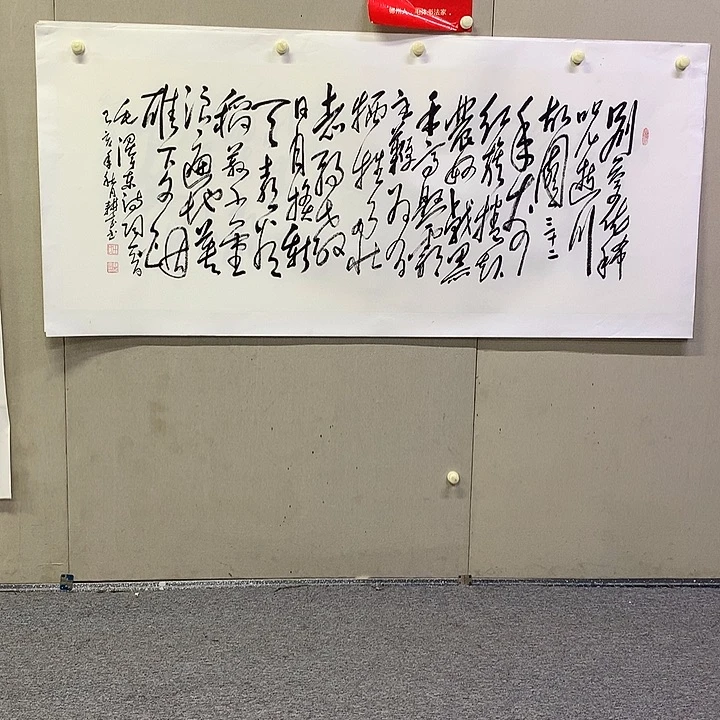 别梦依稀
咒逝川
故園三十二
年前
红旗捲起
農奴戟黑
手高懸霸
主鞭为有
牺牲多壮
志敢教
日月換新
天喜看
稻菽千重
浪遍地英
雄下夕烟
毛澤東诗
己亥年秋月耕
书法家